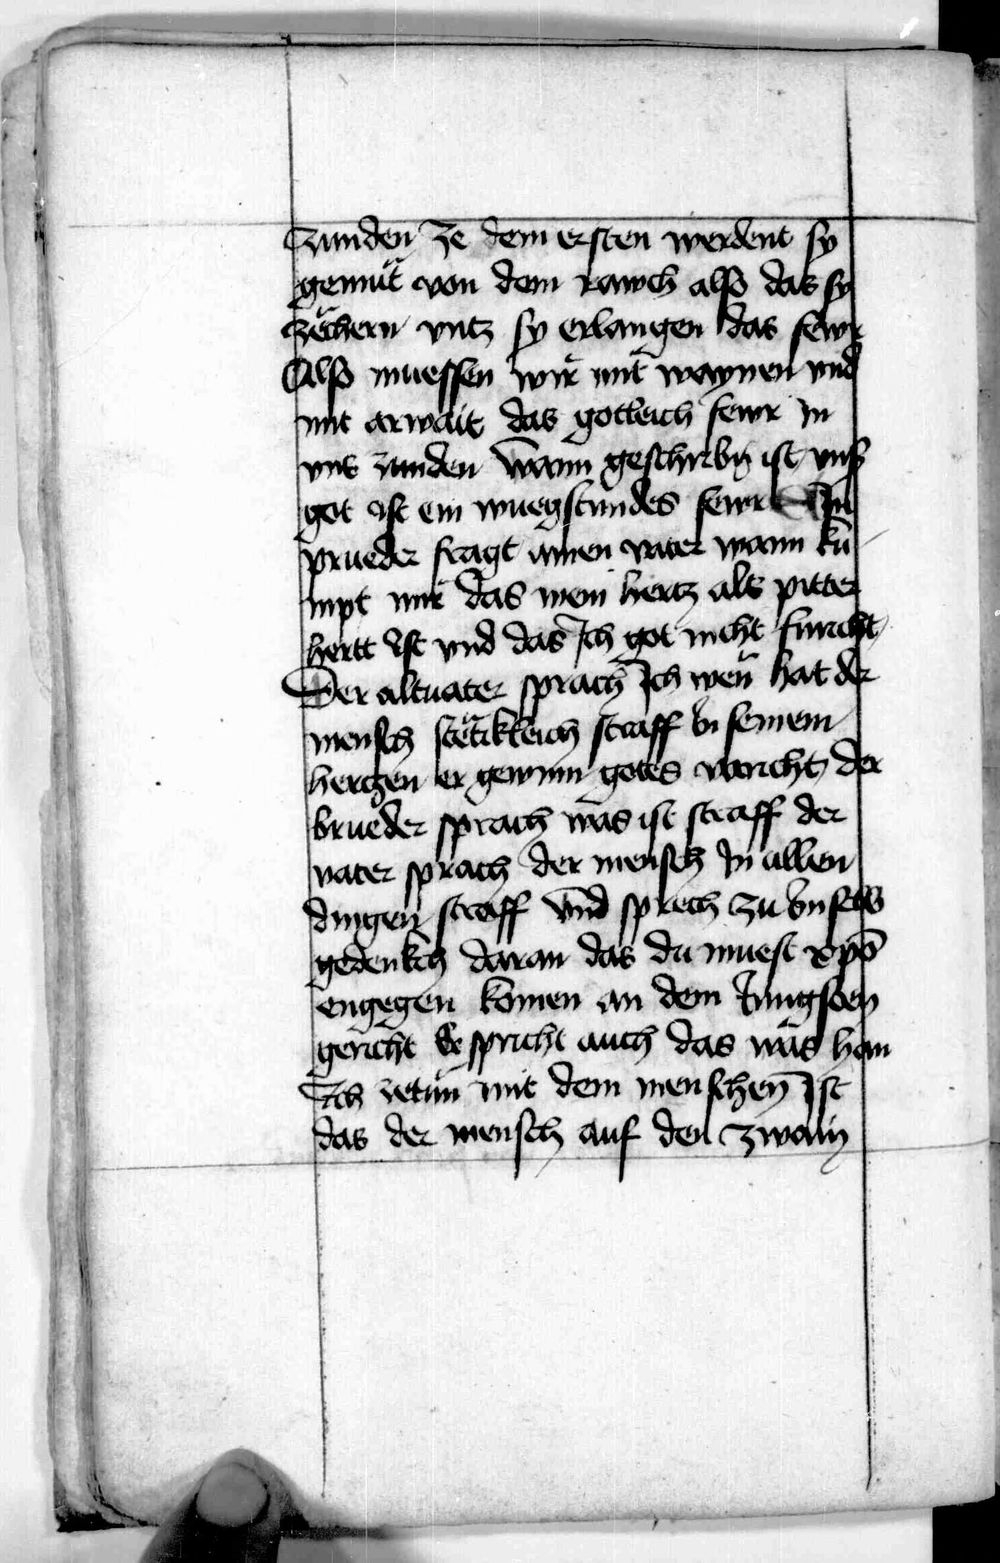 zunden ze dem ersten werdent sy
gemüt von dem rawch also das sy
zëchern vntz sy erlangen das fewr
Also muessen wir mit waynen vnd
mit arwait das gotleich fewr in
vns zunden wann geschribn ist vnser
got ist ein fewr Ain
prueder fragt ainen vater wann ku
mpt mir das mein hertz als pitter
hertt ist vnd das Ich got nicht furcht
Der altuater sprach Ich wen hat der
mensch stëtikleich straff in seinem
hertzen er gewinn gotes voricht der
brueder sprach was ist straff der
vater sprach der mensch In allen
dingen straff vnd sprech zu Im selb
gedenkch daran das du muest xpo
engegen komen an dem Jungsten
gericht Er spricht auch das was han
Ich zetun mit dem menschen Ist
das der mensch auf den zwain